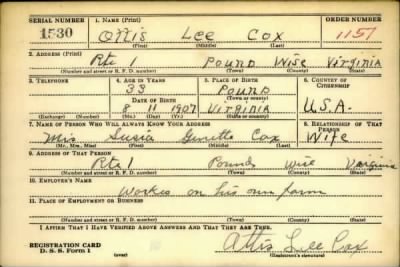 SERIAL NUMBER 1. NAME (Print) ORDER NUMBER
1530 Ottis Lee Cox 1151
(First) (Middle) (Last)
2. ADDRESS (Print)
Rte 1 Pound Wise Virginia
(Number and street or R. F. D. number) (Town) (County) (State)
3. TELEPHONE 4. AGE IN YEARS 5. PLACE OF BIRTH 6. COUNTRY OF CITIZENSHIP
33 Pound
DATE OF BIRTH (Town or county)
8 11 1907 Virginia U.S.A.
(Exchange) (Number) (Mo.) (Day) (Yr.) (State or country)
7. NAME OF PERSON WHO WILL ALWAYS KNOW YOUR ADDRESS 8. RELATIONSHIP OF THAT PERSON
Mrs Susie Cox Wife
(Mr., Mrs., Miss) (First) (Middle) (Last)
9. ADDRESS OF THAT PERSON
Rte 1 Pound Wise Virginia
(Number and street or R. F. D. number) (Town) (County) (State)
10. EMPLOYER'S NAME
Works on his own farm
11. PLACE OF EMPLOYMENT OR BUSINESS
(Number and street or R. F. D. number) (Town) (County) (State)
I AFFIRM THAT I HAVE VERIFIED ABOVE ANSWERS AND THAT THEY ARE TRUE.
REGISTRATION CARD
D. S. S. Form 1 (over) Ottis Lee Cox
(Registrant's signature)